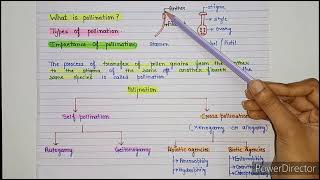 What is pollination?
Types of pollination
Importance of pollination
Anther
stigma
style
ovary
Stamen
Pistil
The process of transfer of pollen grains from the
to the stigma of the same or another of the
same species is called pollination.
Pollination
Self pollination
Cross pollination
(Xenogamy or allogamy)
Autogamy
Geitonogamy
Abiotic agencies
Biotic Agencies
Anemophily
Hydrophily
Entomophily
PowerDirector